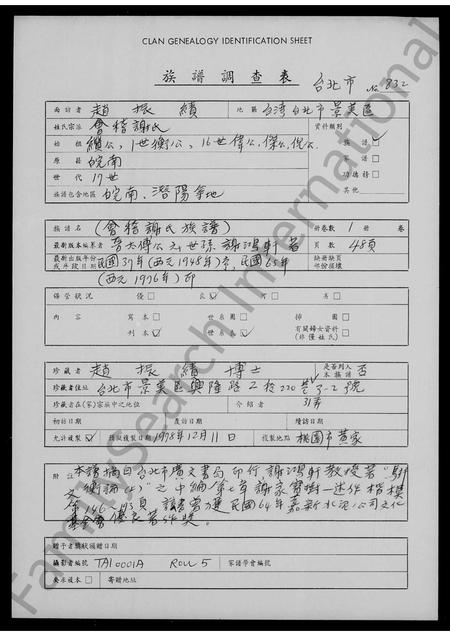 CLAN GENEALOGY IDENTIFICATION SHEET
族譜調查表 台北市 No 832
面訪者 趙振績 地區 台湾台北市景美區
姓氏宗派 會稽謝氏 資料類別
始祖 纘公,1世衡公,16世偉公.傑公.倪公. 族譜 ✓
原籍 皖南 家譜
世代 17世 功德榜
族譜包含地區 皖南、潛陽等地 其他
族譜名 (會稽謝氏族譜) 冊卷數 1 冊 卷
最新版本編纂者 晉太傅公元世孫謝鴻軒着 頁數 48頁
最新出版年份或年段日期 民國37年(西元1948年)序,民國65年 缺冊缺頁部份損壞
(西元1976年)印
保管狀況 優 良 ✓ 可 劣
內容 寫本 世系圖 插圖
刊本 ✓ 世系表 ✓ 有關婦女資料(非僅姓氏)
珍藏者 趙振績博士 是否列入本族譜 否
珍藏者住址 台北市景美區興隆路2段220巷3-2號
31弄
珍藏者在(家)宗族中之地位 介紹者
初訪日期 產訪日期 續訪日期
允許複製 ✓ 預擬複製日期 1978年12月11日 複製地點 桃園市黃家
附註 本譜摘自台北市廣文書局印行謝鴻軒教授著"駢
文衡論(4)"之中編第七章謝家寶樹一述作楷模
146-193頁 該書曾獲民國64年嘉新水泥公司文化
基金會優良著作獎。
贈予者獎狀頒贈日期
攝影者編號 TA10001A ROLL 5 家譜學會編號
要永複本 寄贈地址
FamilySearch International